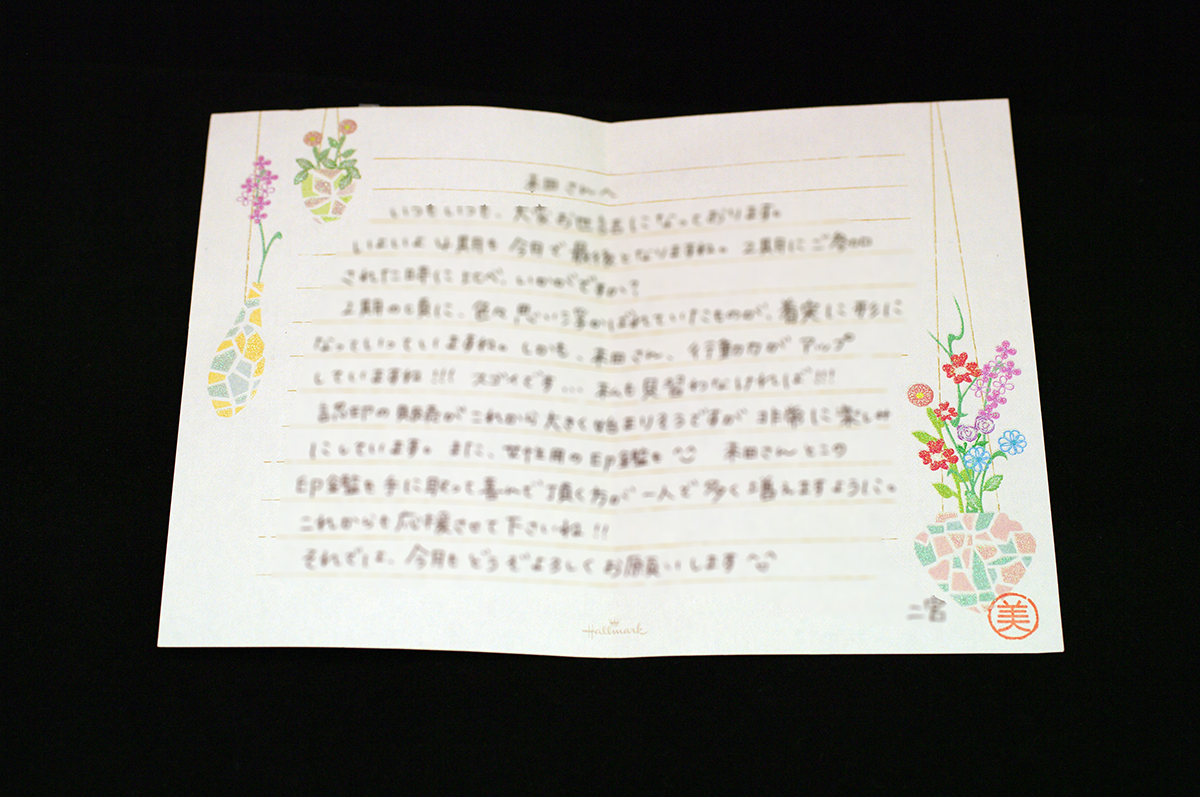 本田さんへ
いつもいつも、大変お世話になっております。
いよいよ4期も今月で最後となりますね。2期にご参加
された時に比べ、いかがですか？
2期の頃に、色々思い浮かばれていたものが、着実に形に
なっていっていますね。しかも、本田さん、行動力がアップ
していますね!!! スゴイです… 私も見習わなければ!!!
認印の販売がこれから大きく始まりそうですが非常に楽しみ
にしています。また、女性用の印鑑も 本田さんとこの
印鑑を手に取って喜んで頂く方が一人で多く増えますように。
これからも応援させて下さいね!!
それでは、今月もどうぞよろしくお願いします
二宮
美
Hallmark